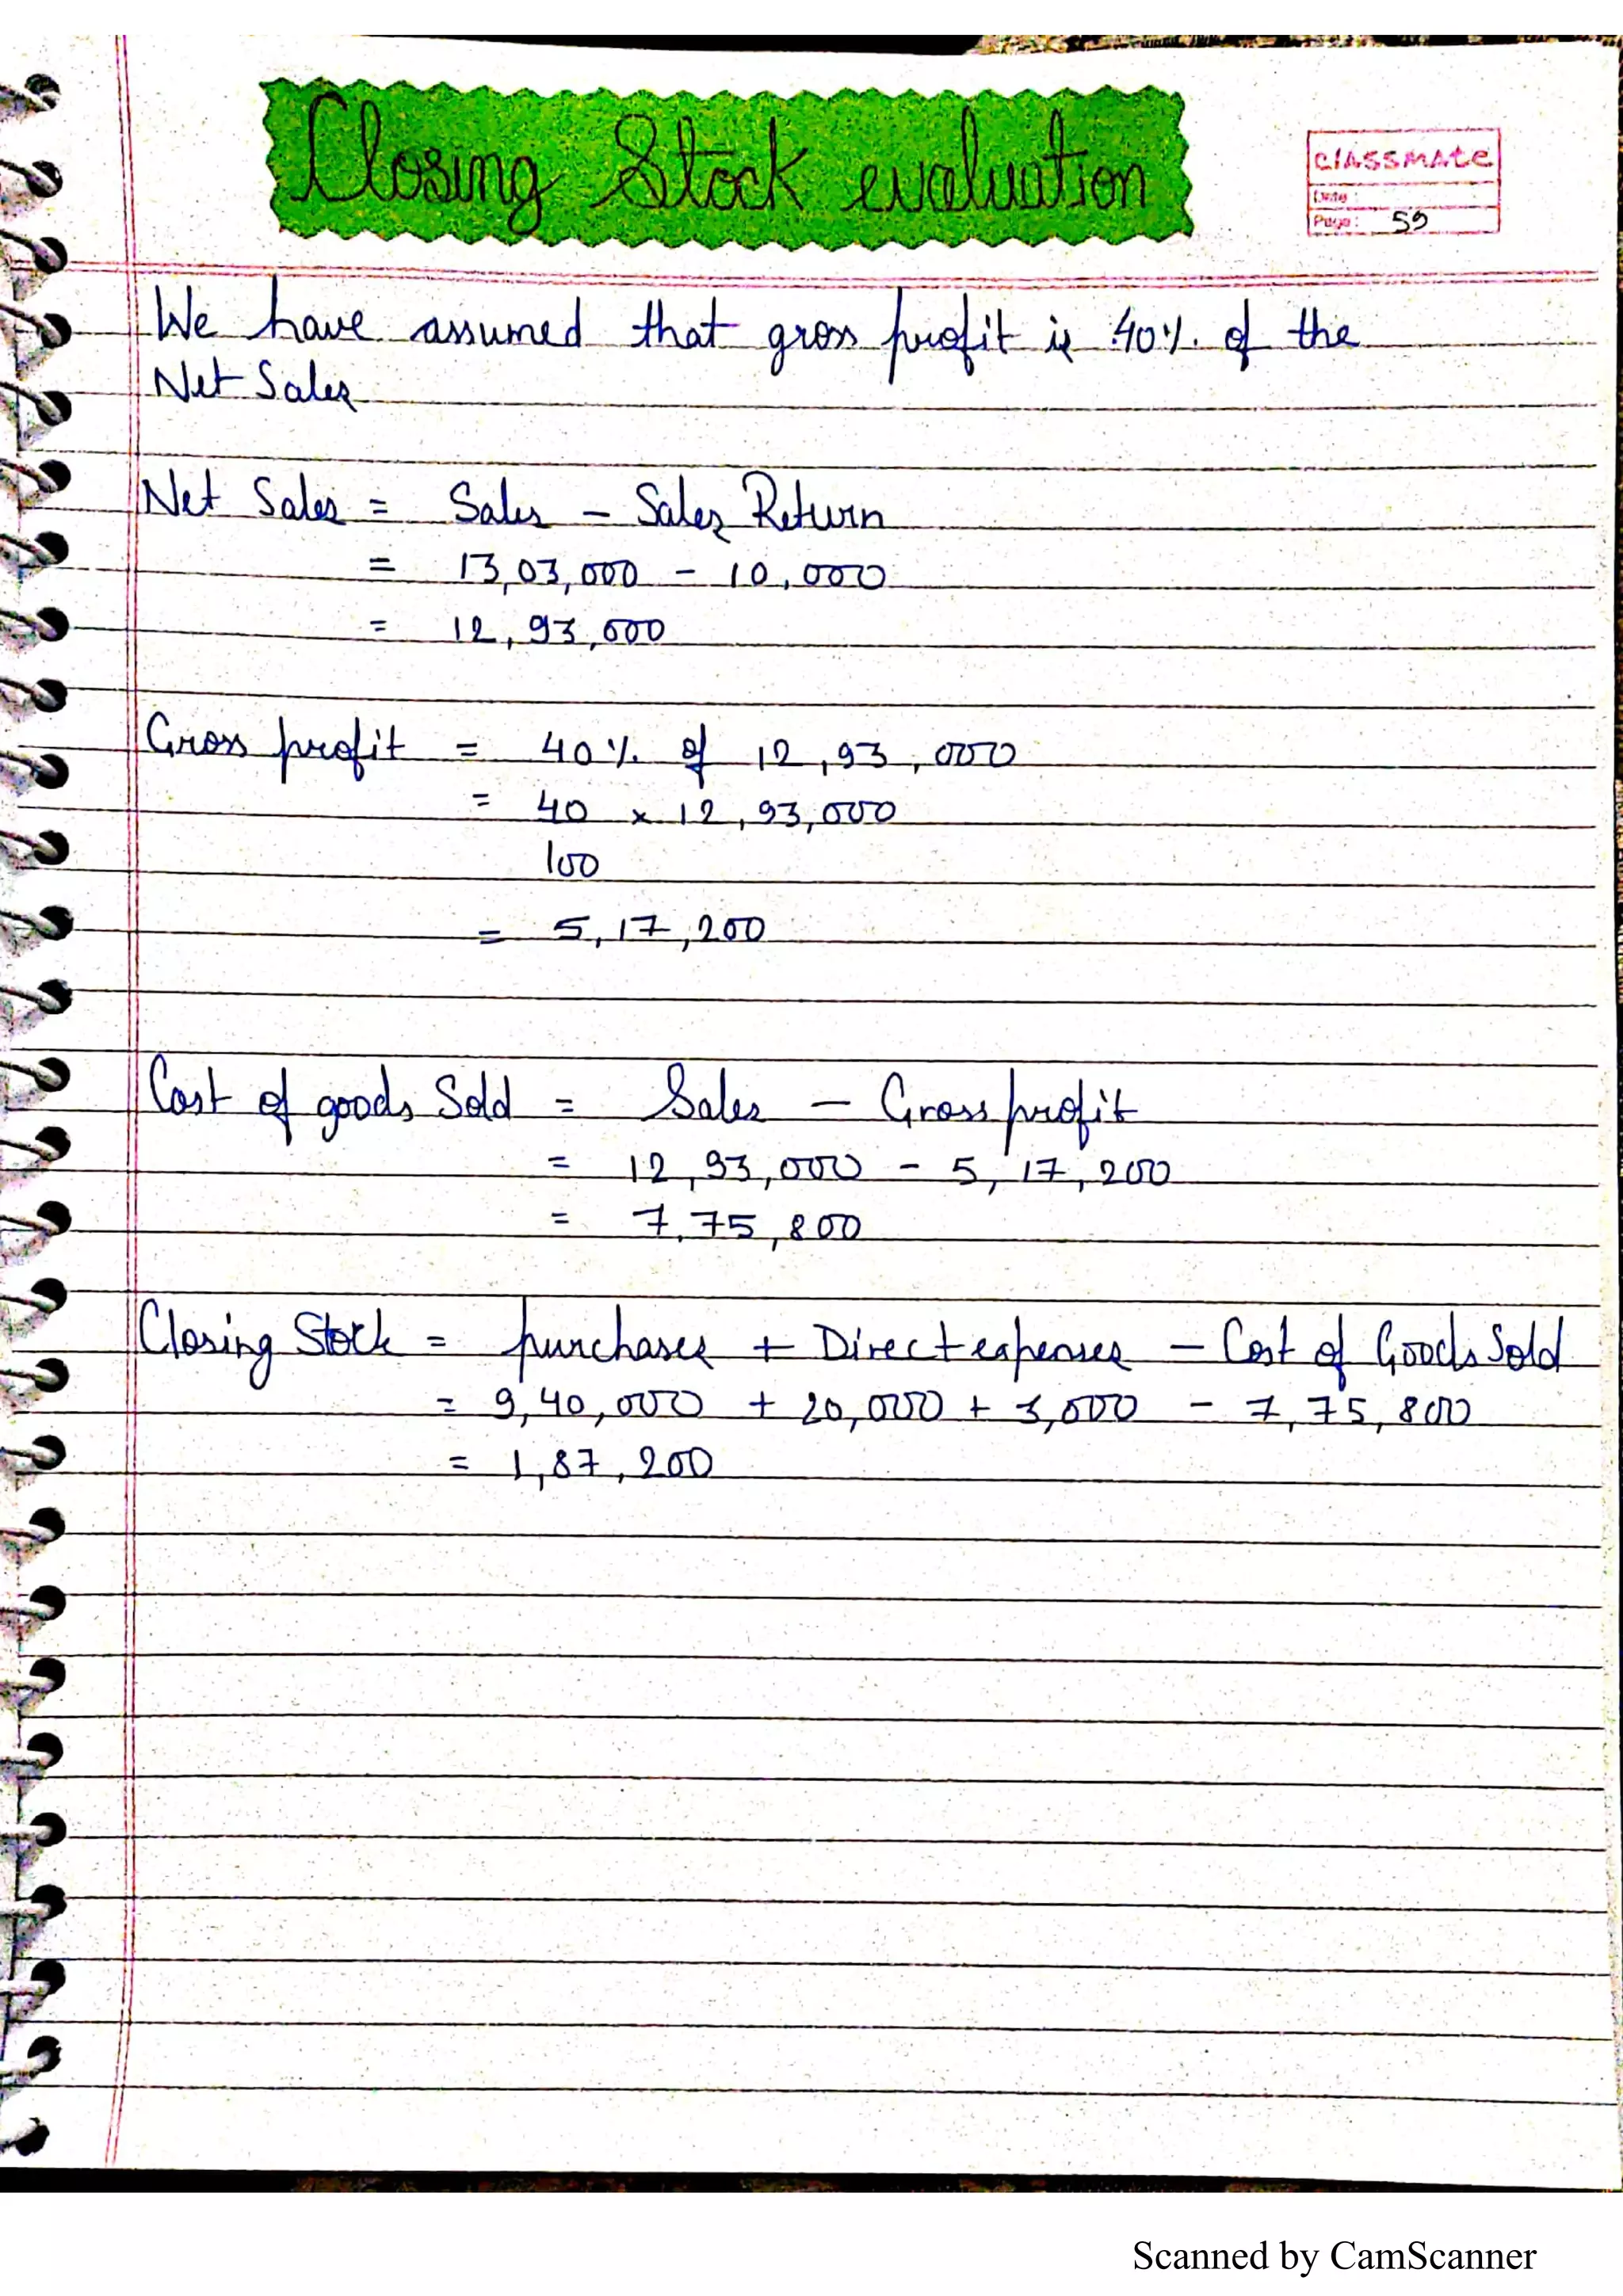 Closing Stock evaluation
classmate
Date
Page: 59
We have assumed that gross profit is 40% of the
Net Sales
Net Sales = Sales - Sales Return
= 13,03,000 - 10,000
= 12,93,000
Gross profit = 40% of 12,93,000
= 40 x 12,93,000
100
= 5,17,200
Cost of goods Sold = Sales - Gross profit
= 12,93,000 - 5,17,200
= 7,75,800
Closing Stock = purchases + Direct expenses - Cost of Goods Sold
= 9,40,000 + 20,000 + 3,000 - 7,75,800
= 1,87,200
Scanned by CamScanner